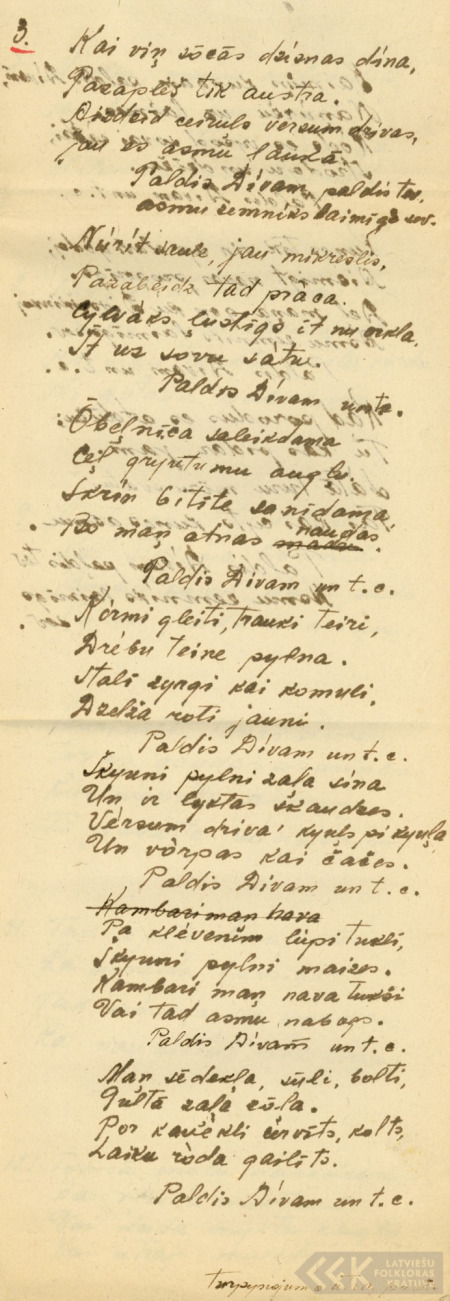 3.
Kai viņ sōcās dzismas dīna,
Pasaplēš tik austra.
Aizdzid ceiruls versum drivas,
jau es asmu laukā
Paldis Dīvam, paldis tev,
asmu zemnīks laimīgs sev.
Nūrīt saule, jau mikreslis,
Pazabeidz tad prāca.
Cylvāks lustīgs it nu orkla,
It uz sovu sātu.
Paldis Dīvam unt c.
Ōbeļnīca saleikdama
Ceļ gryutumu augļu.
Skrīn bitīte sanīdama
Bo maņ atnas naudas.
Paldis Dīvam un t. c.
Kōrmi gleiti, trauki teiri,
Drēbu teine pylna.
Stalī zyrgi kai komuli,
Dzelža roti jauni.
Paldis Dīvam un t. c.
Škyuni pylni zaļa sīna
Un ir lyktas škaudzes.
Vērsum drivā kyuļs pi kyuļa
Un vōrpas kai čačes.
Paldis Dīvam un t. c.
Kambari man nava
Pa klēvenim lūpi tukli,
Škyuni pylni maizes.
Kambari maņ nava tukši
Vai tad asmu nabogs.
Paldis Dīvam un t. c.
Maņ sēdekļa, sūli, bolti,
Gultā zaļa zōļa.
Por kačēkli cērvīts, kolts,
Laiku rōda gailīts.
Paldis Dīvam un t. c.
LATVIEŠU
FOLKLORAS
KRĀTUVE